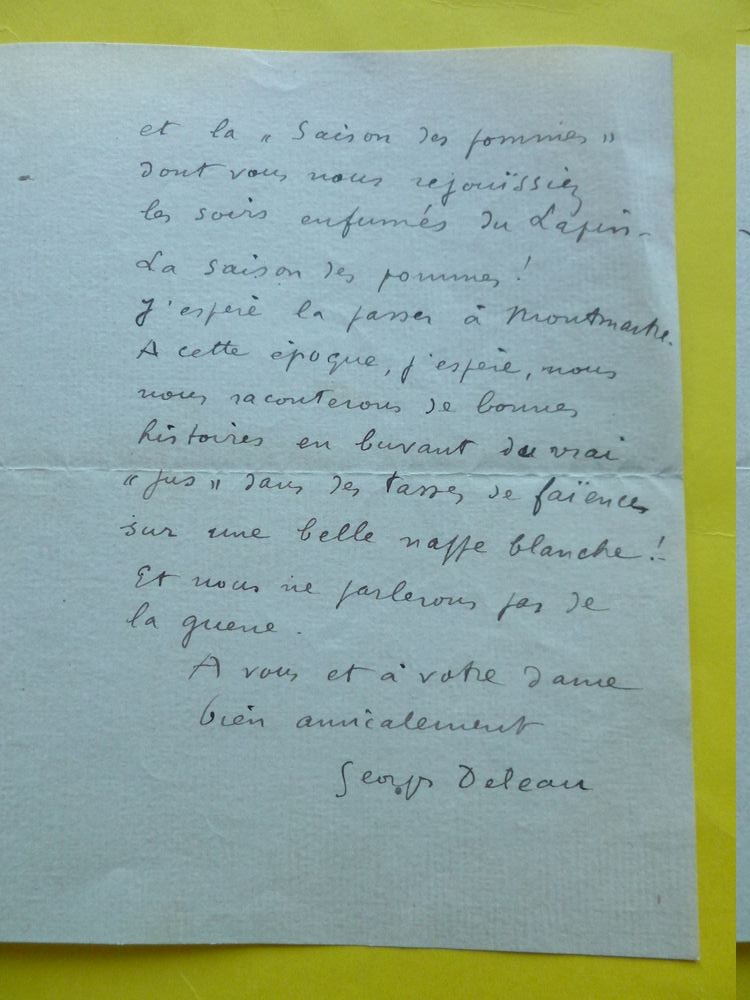 et la "Saison des pommes"
dont vous nous rejouïssiez
les soirs enfumés du Lapin-
La saison des pommes !
J'espère la passer à Montmartre.
A cette époque, j'espère, nous
nous raconterons de bonnes
histoires en buvant du vrai
"jus" dans des tasses de faïences
sur une belle nappe blanche !
Et nous ne parlerons pas de
la guerre.
A vous et à votre dame
bien amicalement
Georges Deleau